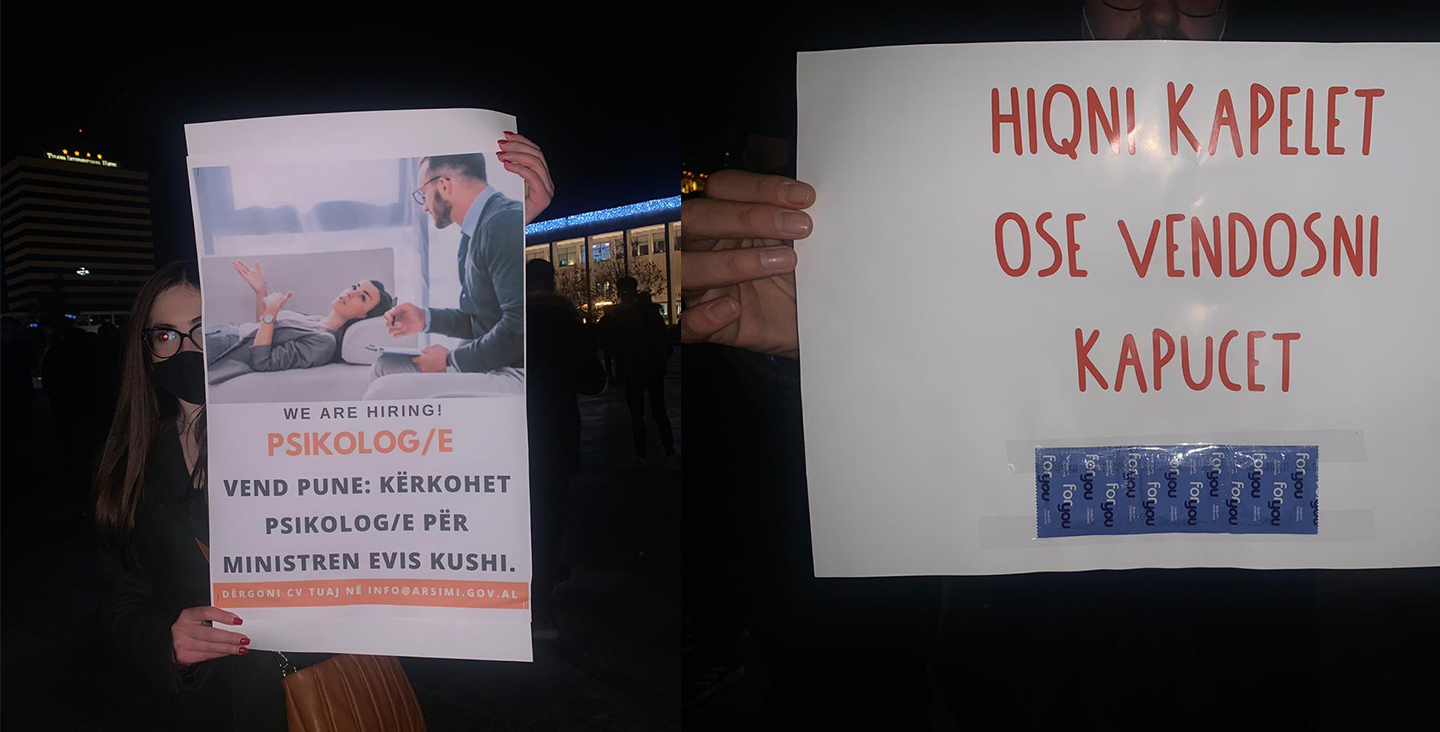 WE ARE HIRING!
PSIKOLOG/E
VEND PUNE: KËRKOHET
PSIKOLOG/E PËR
MINISTREN EVIS KUSHI.
DËRGONI CV TUAJ NË INFO@ARSIMI.GOV.AL
HIQNI KAPELET
OSE VENDOSNI
KAPUCET
for you for you for you for you for you for you for you
for you for you for you for you for you for you